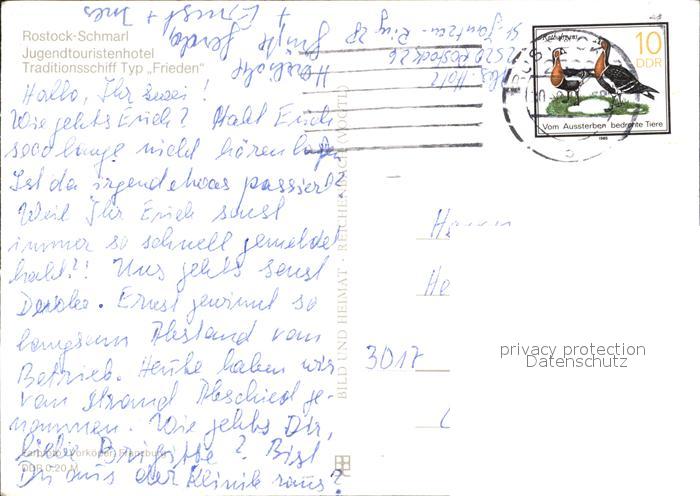 Rostock-Schmarl
Jugendtouristenhotel
Traditionsschiff Typ „Frieden"
Hallo, Ihr zwei!
Wie gehts Euch? Habt Euch
sooo lange nicht hören lassen
Ist da irgendetwas passiert?
Weil Ihr Euch sonst
immer so schnell gemeldet
habt?! Uns gehts sonst
Danke. Ernst gewinnt so
langsam Abstand vom
Betrieb. Heute haben wir
vom Strand Abschied ge-
nommen. Wie gehts Dir,
liebe Brigitte? Bist
Du aus der Klinik raus?
Herzlichst
Grüße Gerda
+ Ernst + Ines
Abs. Holz
2520 Rostock 26
Ring 28
BILD UND HEIMAT · REICHENBACH (VOGTL)
DDR 0,20 M
10
DDR
Vom Aussterben bedrohte Tiere
1985
3017
privacy protection
Datenschutz